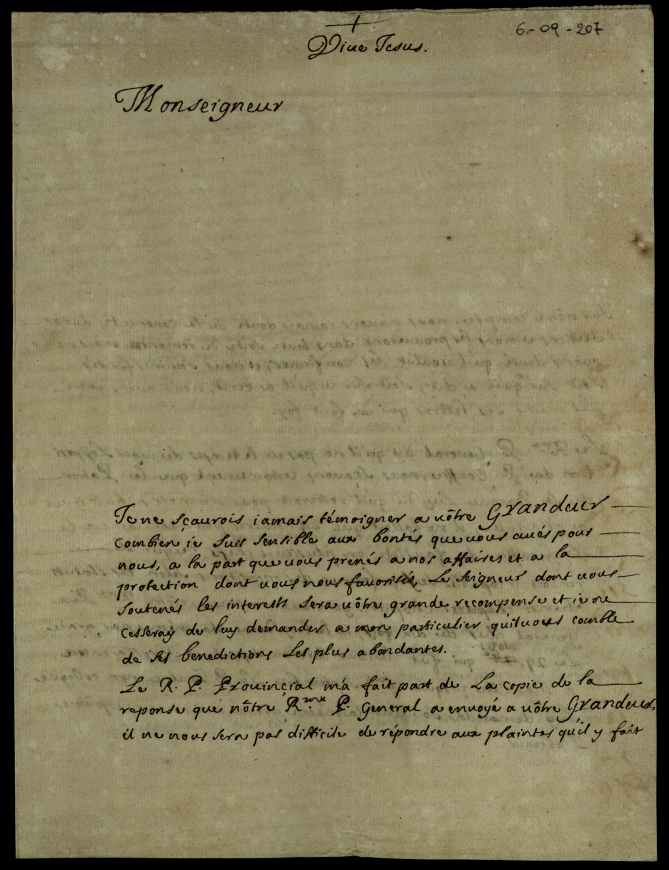 6-09-207
Viue Jesus.
Monseigneur
Je ne sçaurois iamais témoigner a vôtre Grandeur
combien ie suis sensible aux bontés que vous aués pour
nous, a la part que vous prenés a nos affaires et a la
protection dont vous nous favorisés, Le Seigneur dont vous
soutenés les interests sera vôtre grande recompense et ie ne
cesseray de luy demander a mon particulier quil vous comble
de ses benedictions les plus abondantes.
Le R. P. Provincial m'a fait part de la copie de la
reponse que nôtre R.me P. General a envoyé a vôtre Grandeur,
il ne nous sera pas difficile de répondre aux plaintes qu'il y fait